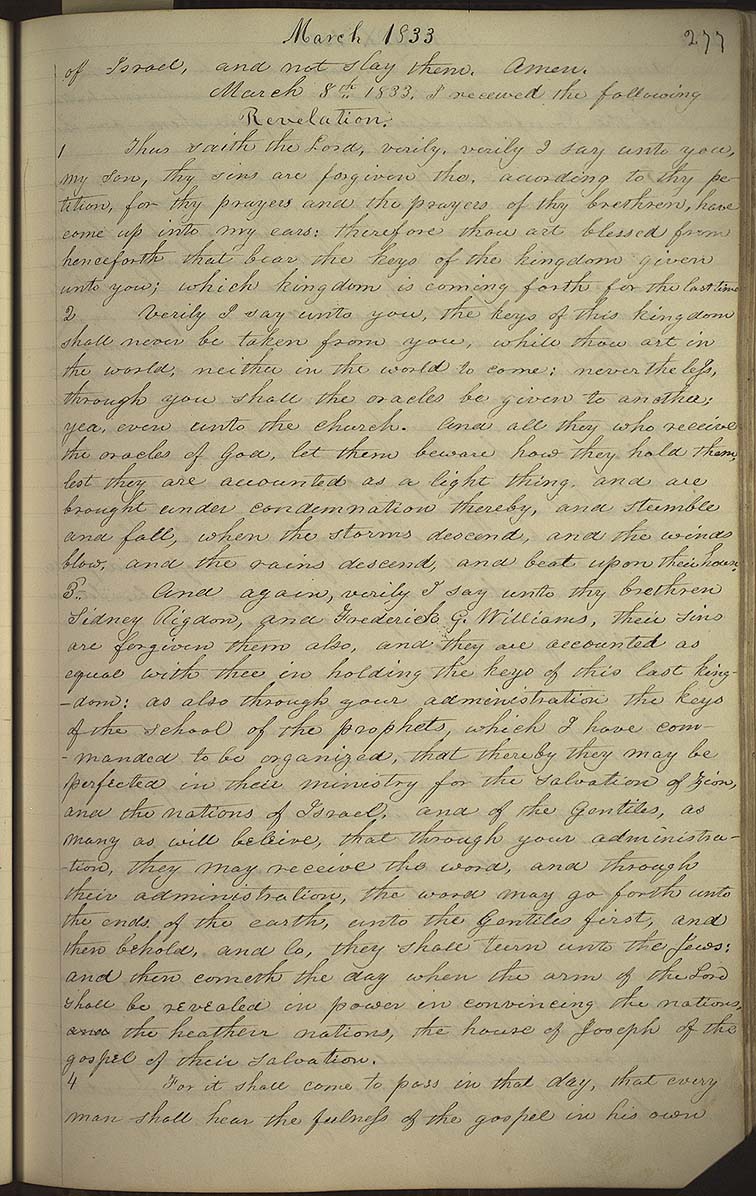 March 1833
277
of Israel, and not slay them. Amen.
March 8th 1833. I received the following
Revelation.
1 Thus saith the Lord, verily, verily I say unto you,
my Son, thy sins are forgiven the, acording to thy pe-
tition, for thy prayers and the prayers of thy brethren, have
come up into my ears: therefore thou art blessed from
henceforth that bear the keys of the kingdom given
unto you; which kingdom is coming forth for the last time
2 Verily I say unto you, the keys of this kingdom
shall never be taken from you, while thou art in
the world, neither in the world to come: nevertheless,
through you shall the oracles be given to another;
yea, even unto the church. And all they who receive
the oracles of God, let them beware how they hold them,
lest they are accounted as a light thing, and are
brought under condemnation thereby, and stumble
and fall, when the storms descend, and the winds
blow, and the rains descend, and beat upon their house.
3. And again, verily I say unto thy brethren
Sidney Rigdon, and Frederick G. Williams, their sins
are forgiven them also, and they are accounted as
equal with thee in holding the keys of this last king-
-dom: as also through your administration the keys
of the school of the prophets, which I have com-
-manded to be organized, that thereby they may be
perfected in their ministry for the salvation of Zion,
and the nations of Israel, and of the Gentiles, as
many as will beleive, that through your administra-
-tion, they may receive the word, and through
their administration, the word may go forth unto
the ends of the earth, unto the Gentiles first, and
then behold, and lo, they shall turn unto the Jews:
and then cometh the day when the arm of the Lord
shall be revealed in power in convincing the nations,
and the heathen nations, the house of Joseph of the
gospel of their salvation.
4 For it shall come to pass in that day, that every
man shall hear the fulness of the gospel in his own